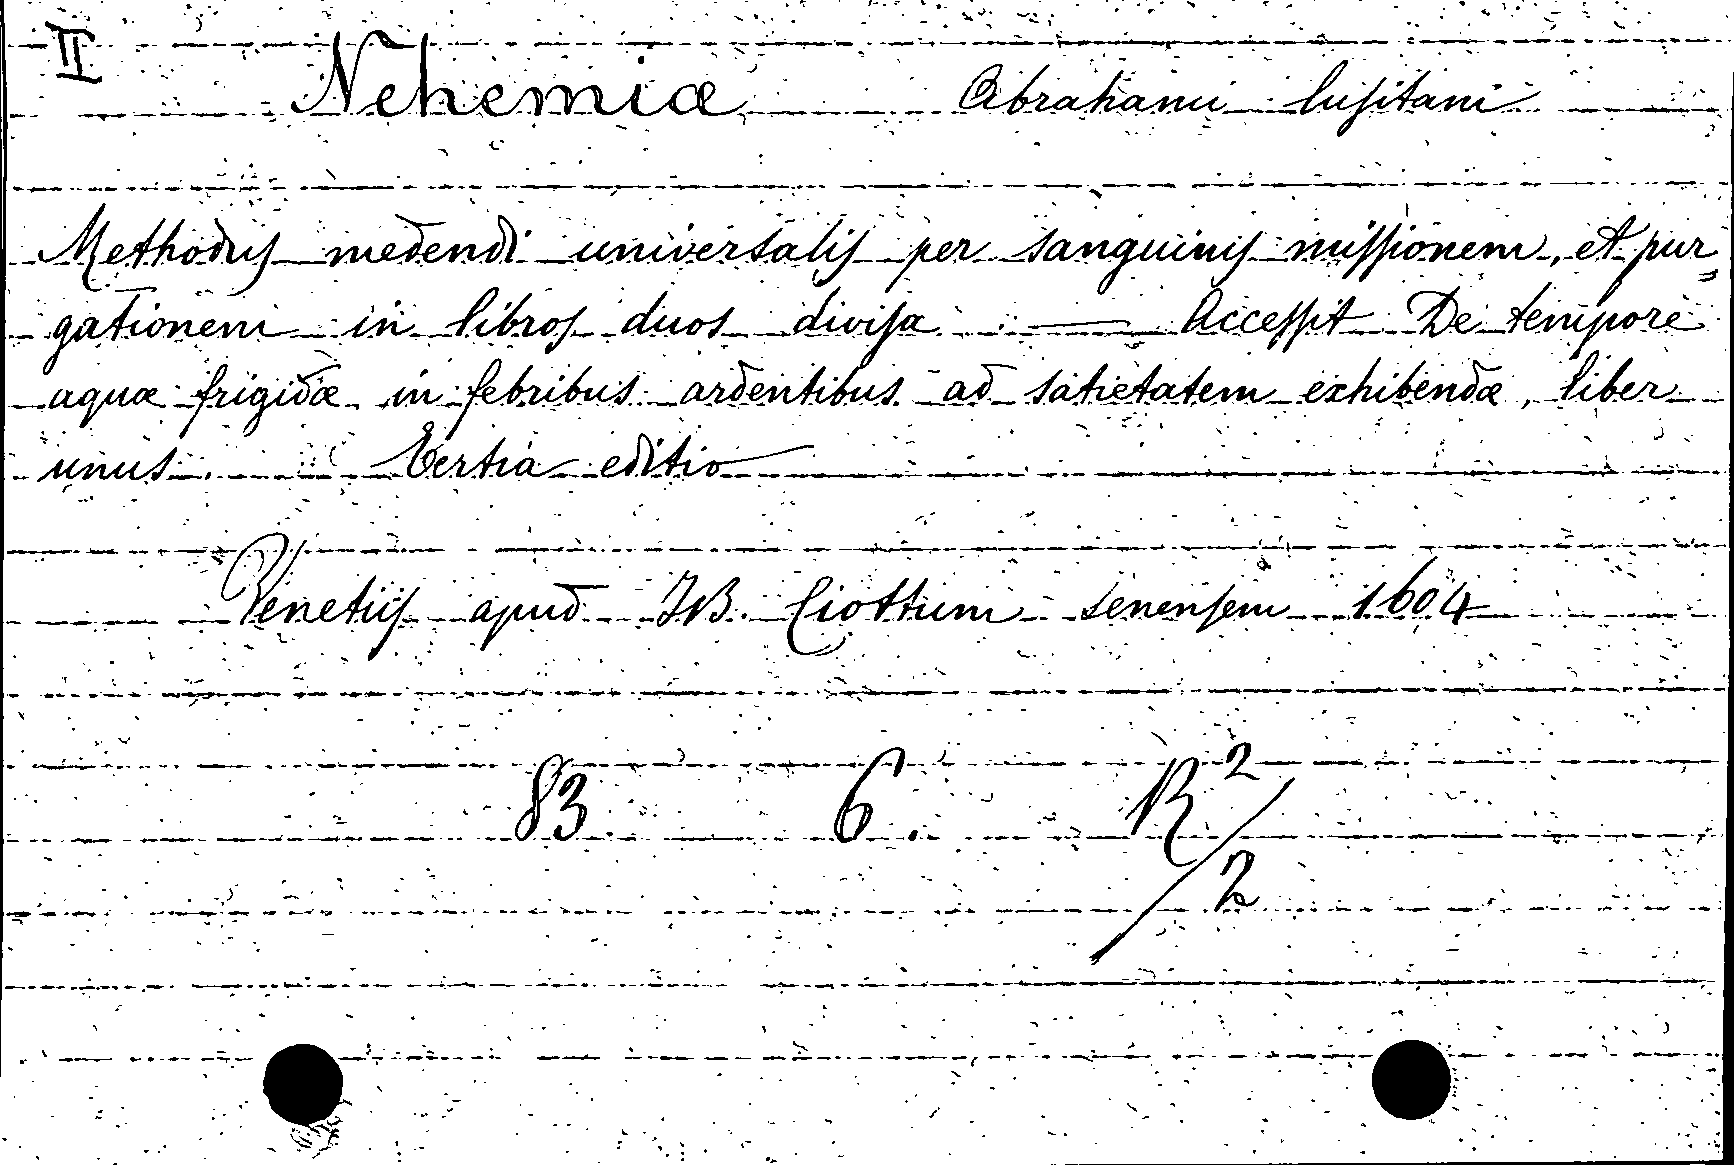 II Nehemiæ Abrahami lusitani
Methodus medendi universalis per sanguinis missionem, et pur-
gationem in libros duos divisa — Accessit De tempore
aquæ frigidæ in febribus ardentibus ad satietatem exhibendæ, liber
unus. Tertia editio
Venetiis apud JB. Ciottum senensem 1604
83 6. R 2/2